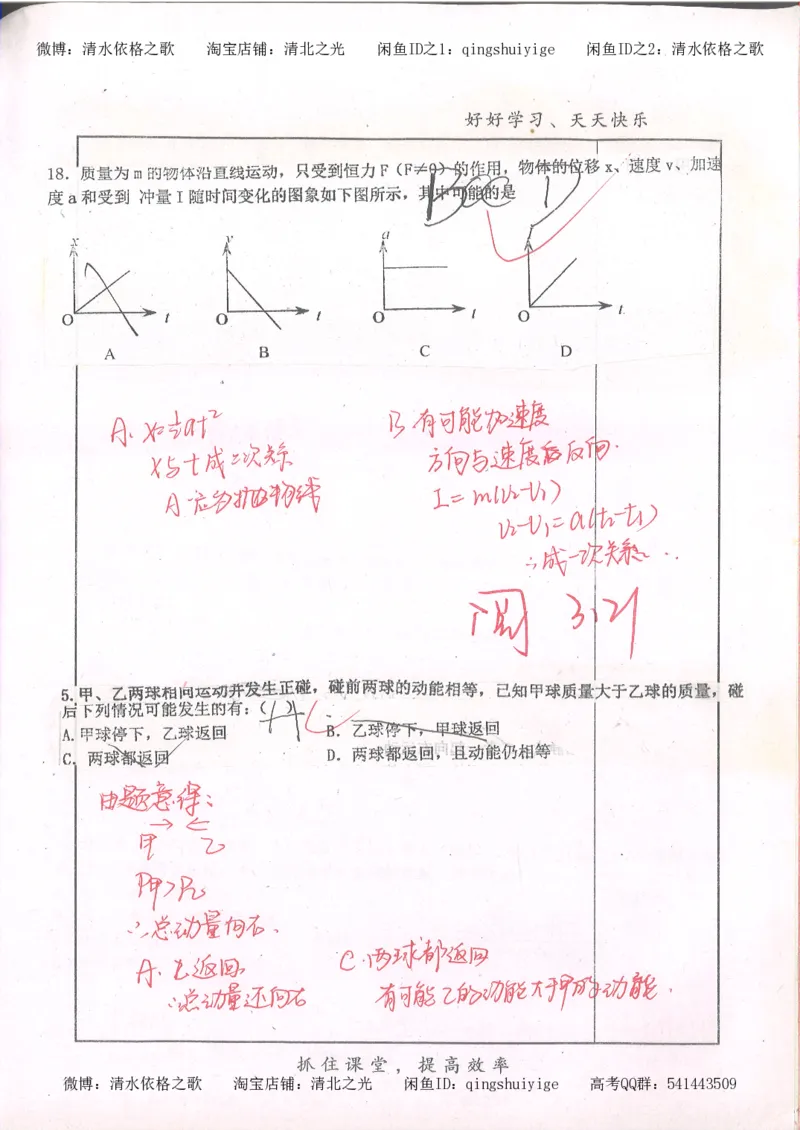 微博：清水依格之歌 淘宝店铺：清北之光 闲鱼ID之1：qingshuiyige 闲鱼ID之2：清水依格之歌
好好学习、天天快乐
18．质量为 m 的物体沿直线运动，只受到恒力 F（F≠0）的作用，物体的位移 x、速度 v、加速
度 a 和受到 冲量 I 随时间变化的图象如下图所示，其中可能的是
BCD
x v a I
O t O t O t O t
A B C D
A. x=½at²
x与t成二次关系
A 应为抛物线
B 有可能加速度
方向与速度反向.
I=m(v₂-v₁)
v₂-v₁=a(t₂-t₁)
∴成一次关系
阅 3.21
5.甲、乙两球相向运动并发生正碰，碰前两球的动能相等，已知甲球质量大于乙球的质量，碰
后下列情况可能发生的有：( )
A.甲球停下，乙球返回 B．乙球停下，甲球返回
C．两球都返回 D．两球都返回，且动能仍相等
由题意得：
→ ←
甲 乙
P甲>P乙
∴总动量向右.
A. 乙返回
∴总动量还向右
C.两球都返回
有可能乙的动能大于甲的动能.
抓住课堂，提高效率
微博：清水依格之歌 淘宝店铺：清北之光 闲鱼ID：qingshuiyige 高考QQ群：541443509